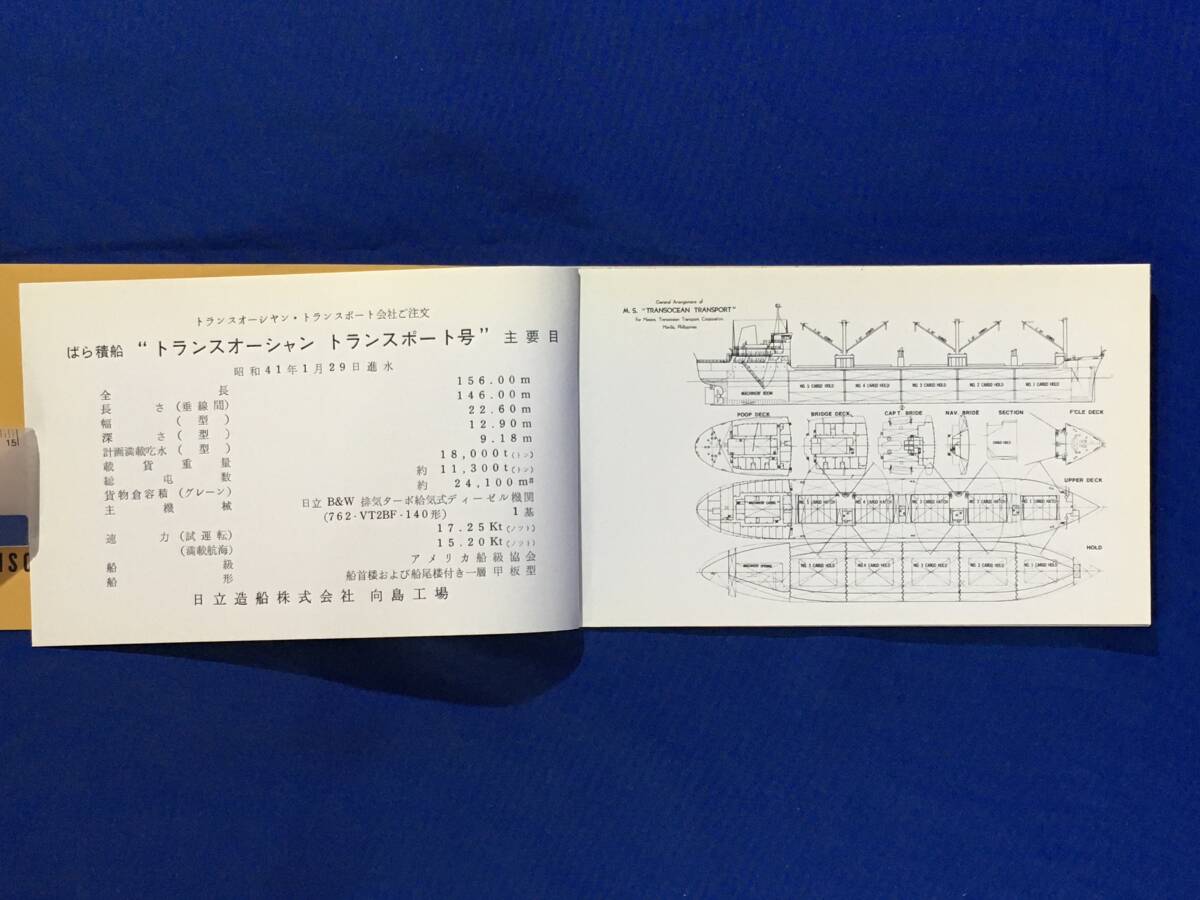 トランスオーシャン・トランスポート会社ご注文
ばら積船 “トランスオーシャン トランスポート号” 主要目
昭和41年1月29日進水
全長 156.00m
長さ(垂線間) 146.00m
幅(型) 22.60m
深さ(型) 12.90m
計画満載吃水(型) 9.18m
載貨重量 18,000t(トン)
総屯数 約 11,300t(トン)
貨物倉容積(グレーン) 約 24,100m³
主機械 日立 B&W 排気ターボ給気式ディーゼル機関
(762-VT2BF-140形) 1基
速力(試運転) 17.25Kt(ノット)
(満載航海) 15.20Kt(ノット)
船級 アメリカ船級協会
船形 船首楼および船尾楼付き一層甲板型
日立造船株式会社 向島工場
15
General Arrangement of
M. S. "TRANSOCEAN TRANSPORT"
for Messrs. Transocean Transport Corporation
Manila, Philippines
MACHINERY ROOM
NO. 5 CARGO HOLD
NO. 4 CARGO HOLD
NO. 3 CARGO HOLD
NO. 2 CARGO HOLD
NO. 1 CARGO HOLD
POOP DECK
BRIDGE DECK
CAPT. BRIDE
NAV. BRIDE
SECTION
F'CLE DECK
CARGO HOLD
UPPER DECK
NO.5 CARGO HATCH
NO.4 CARGO HATCH
NO.3 CARGO HATCH
NO.2 CARGO HATCH
NO.1 CARGO HATCH
HOLD
NO.5 CARGO HOLD
NO.4 CARGO HOLD
NO.3 CARGO HOLD
NO.2 CARGO HOLD
NO.1 CARGO HOLD